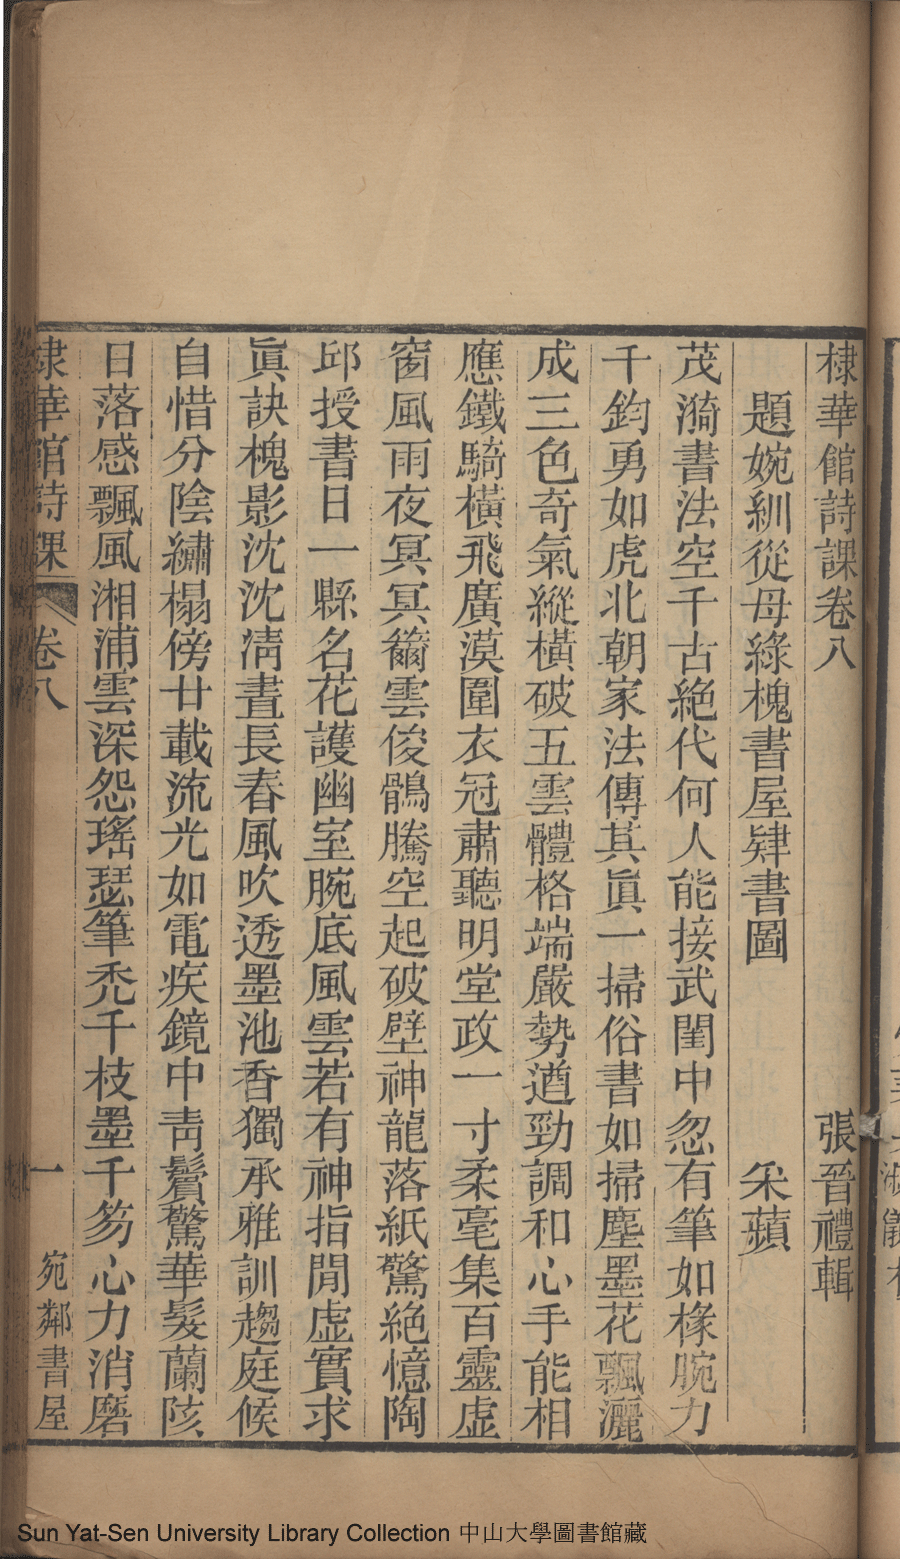 棣華館詩課卷八　張晉禮輯
題婉紃從母綠槐書屋肄書圖　采蘋
茂漪書法空千古絕代何人能接武閨中忽有筆如椽腕力
千鈞勇如虎北朝家法傳其眞一掃俗書如掃塵墨花飄灑
成三色奇氣縱橫破五雲體格端嚴勢遒勁調和心手能相
應鐵騎橫飛廣漠圍衣冠肅聽明堂政一寸柔毫集百靈虛
窗風雨夜冥冥籋雲俊鶻騰空起破壁神龍落紙驚絕憶陶
邱授書日一縣名花護幽室腕底風雲若有神指閒虛實求
眞訣槐影沈沈淸晝長春風吹透墨池香獨承雅訓趨庭候
自惜分陰繡榻傍廿載流光如電疾鏡中靑鬢驚華髮蘭陔
日落感飄風湘浦雲深怨瑤瑟筆禿千枝墨千笏心力消磨
棣華館詩課　卷八　一　宛鄰書屋
Sun Yat-Sen University Library Collection 中山大學圖書館藏